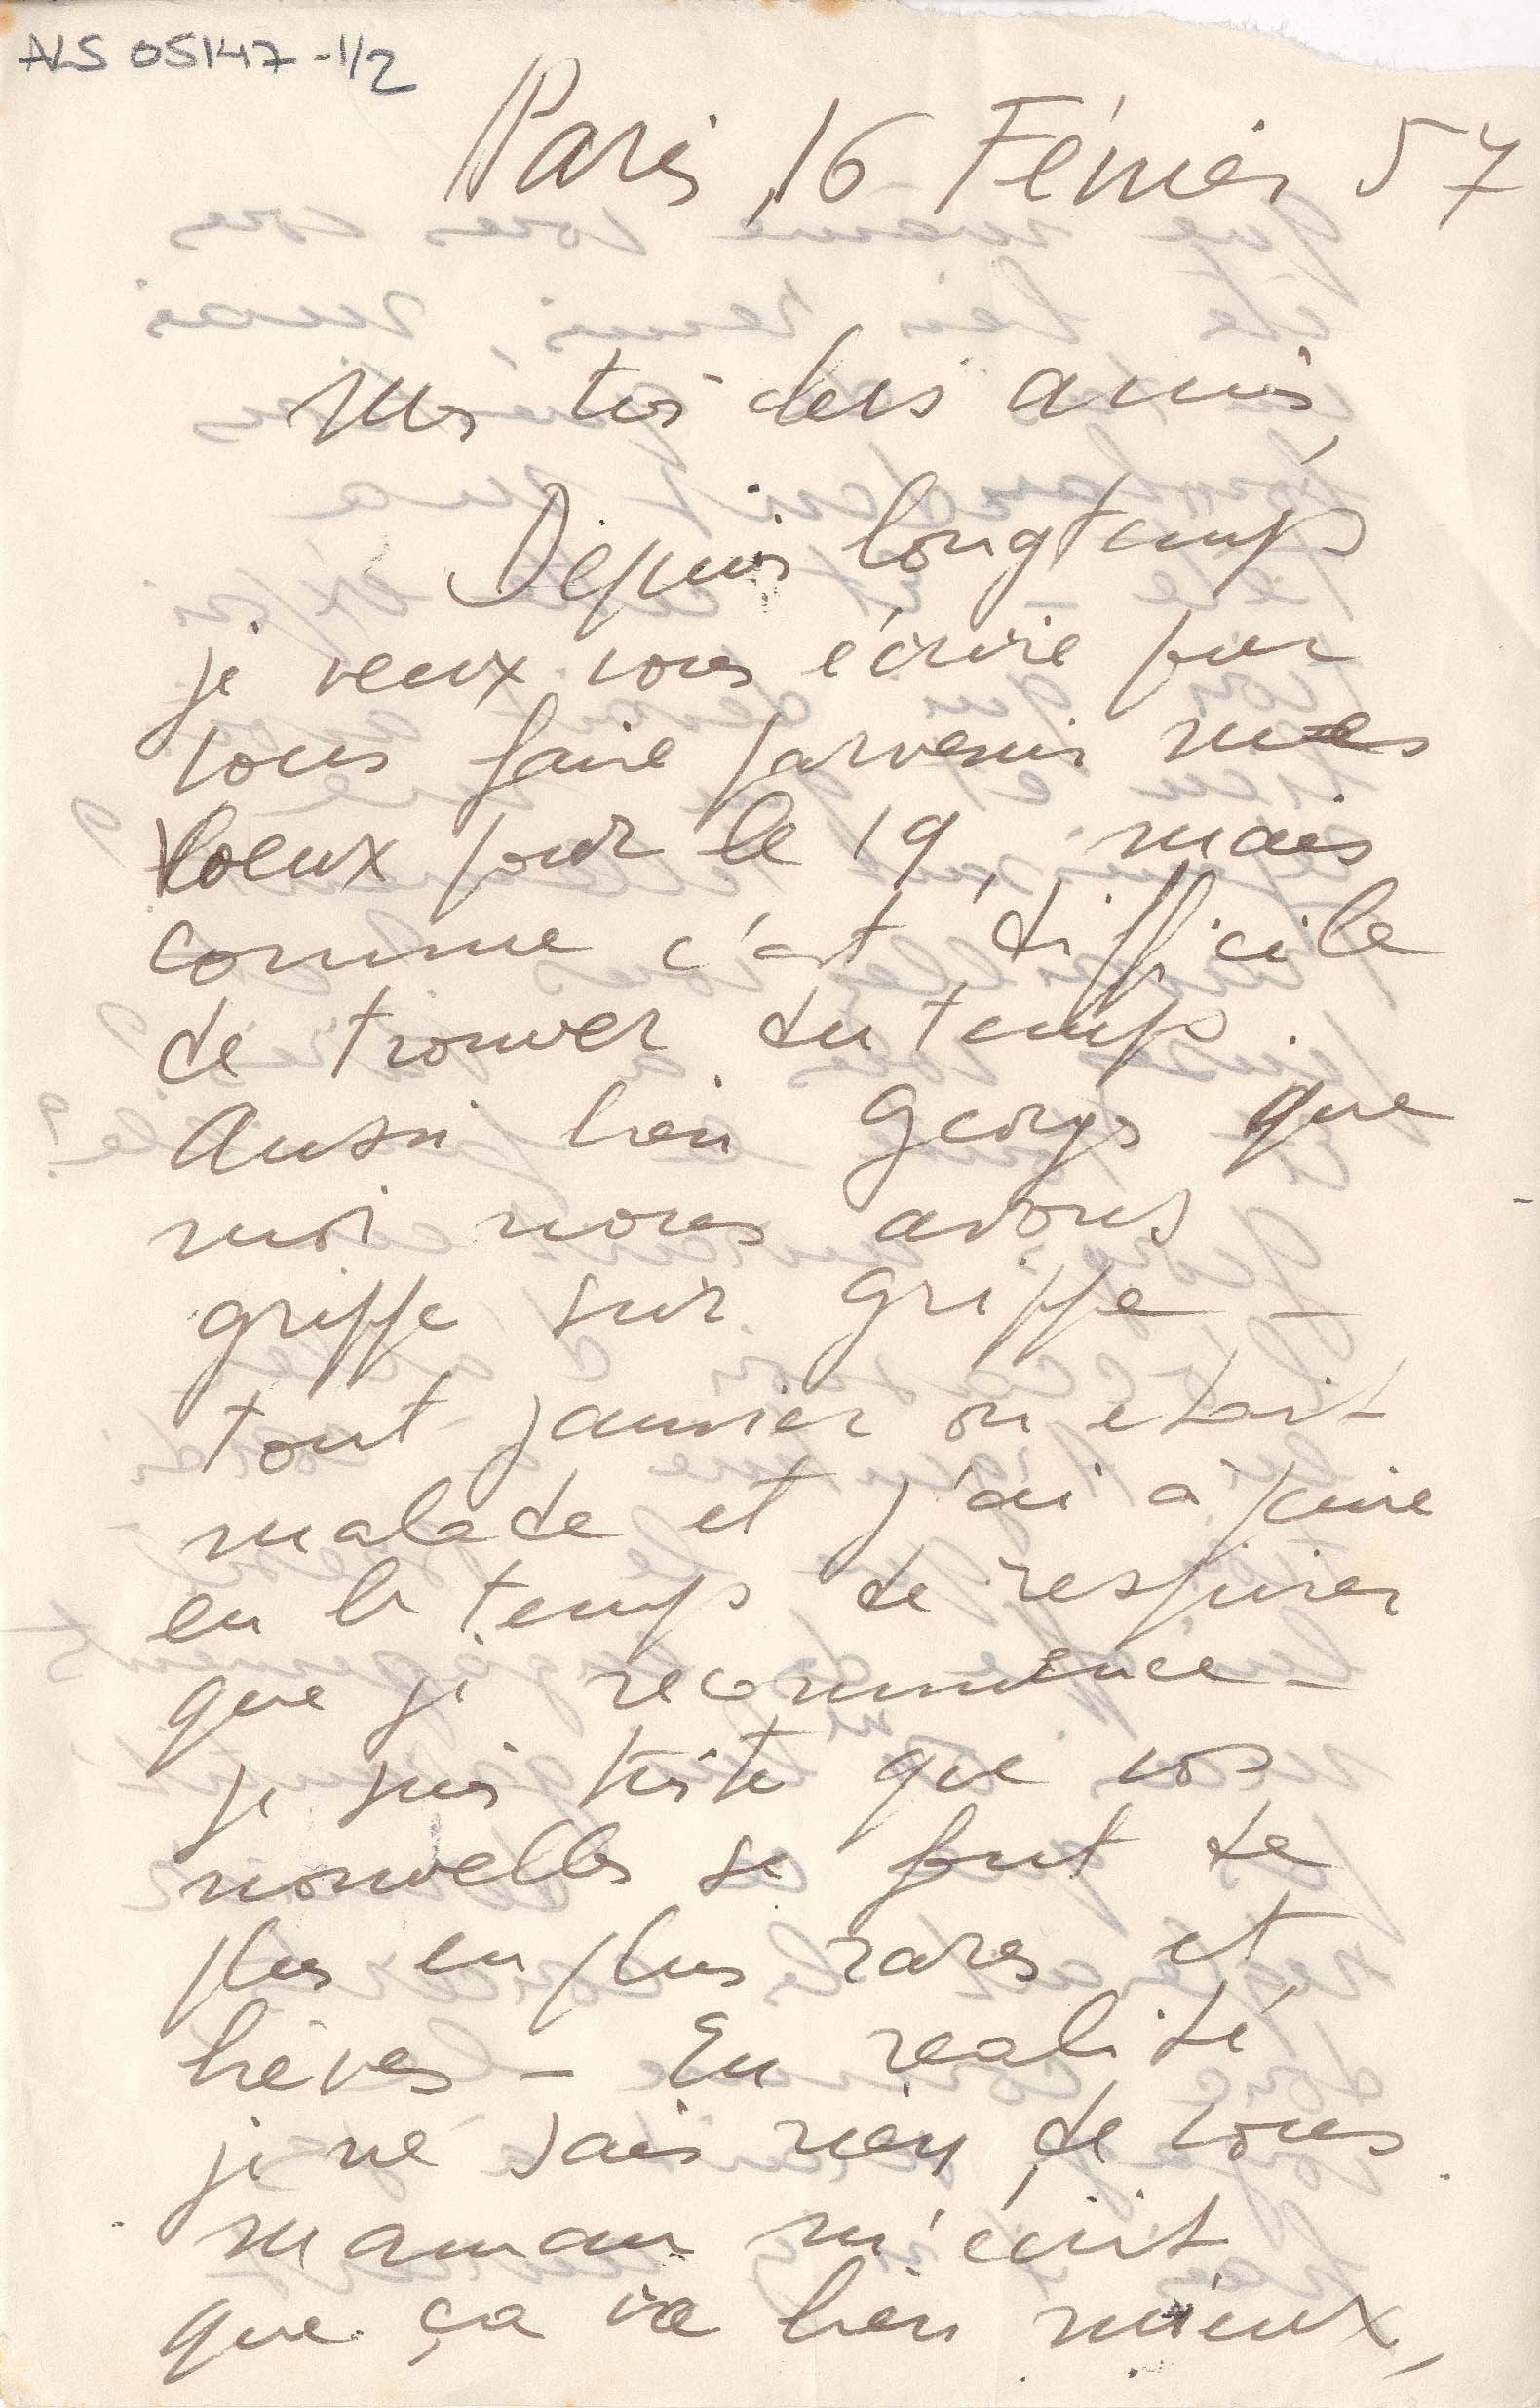 ALS 05147-1/2
Paris, 16 Février 57
Mes très chers amis,
Depuis longtemps
je veux vous écrire pour
vous faire parvenir mes
voeux pour le 19, mais
comme c'est difficile
de trouver du temps.
Aussi bien Georges que
moi nous avons
grippe sur grippe –
tout janvier on était
malade et j'ai à peine
eu le temps de respirer
que je recommence –
je suis triste que vos
nouvelles se font de
plus en plus rares et
brèves – En réalité,
je ne sais rien de vous,
maman m'écrit
que ça va bien mieux,